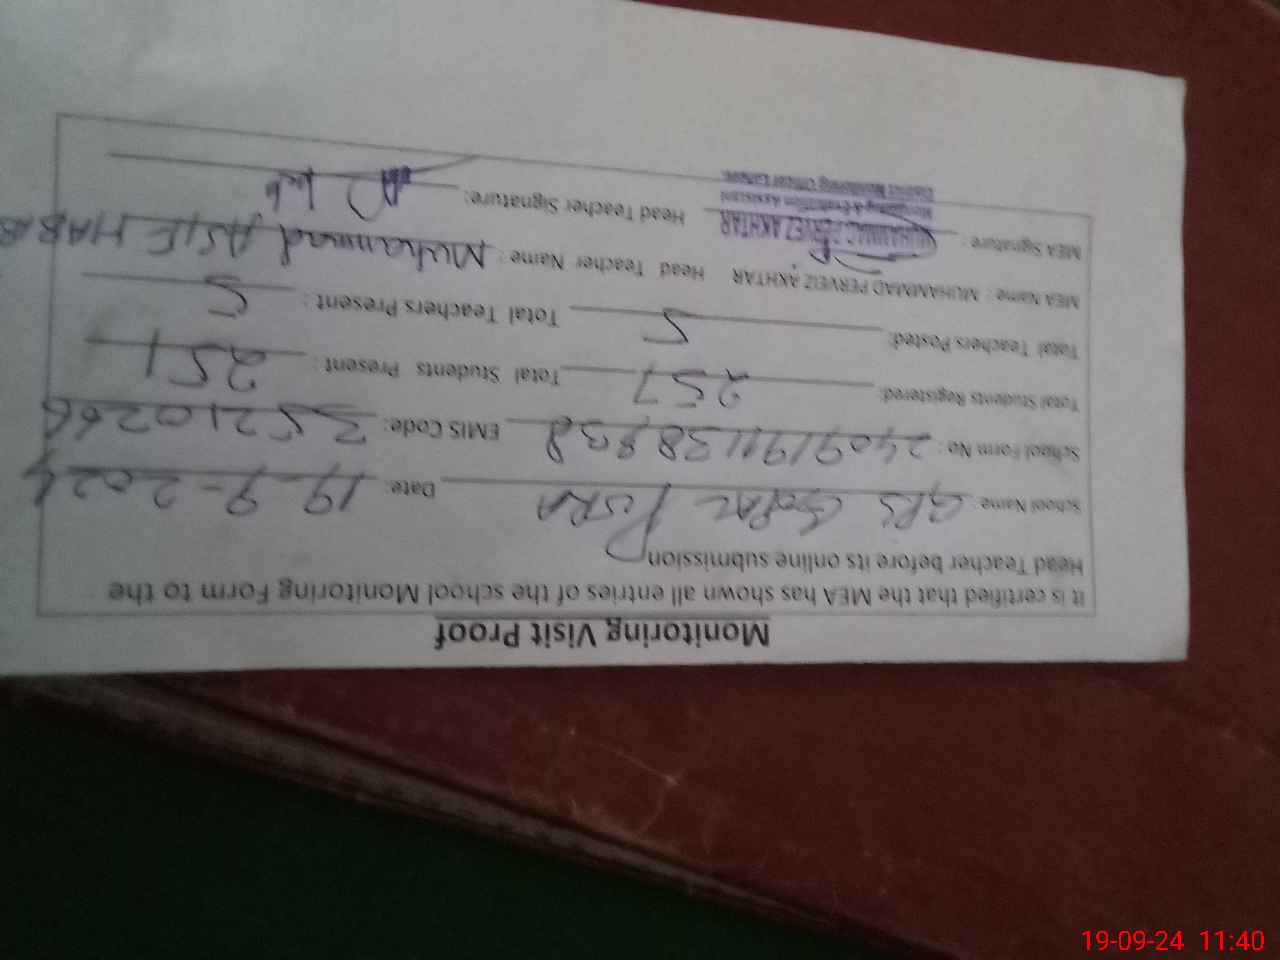 Monitoring Visit Proof
It is certified that the MEA has shown all entries of the school Monitoring Form to the
Head Teacher before its online submission
School Name: GPS GOPAL PURA Date: 19-9-2024
School Form No: 2409191138838 EMIS Code: 35210266
Total Students Registered: 257 Total Students Present: 251
Total Teachers Posted: 5 Total Teachers Present: 5
MEA Name: MUHAMMAD PERVEIZ AKHTAR Head Teacher Name: Muhammad ASIF
MEA Signature: Head Teacher Signature:
MUHAMMAD PERVEZ AKHTAR
Monitoring & Evaluation Assistant
District Monitoring Officer Lahore.
19-09-24 11:40